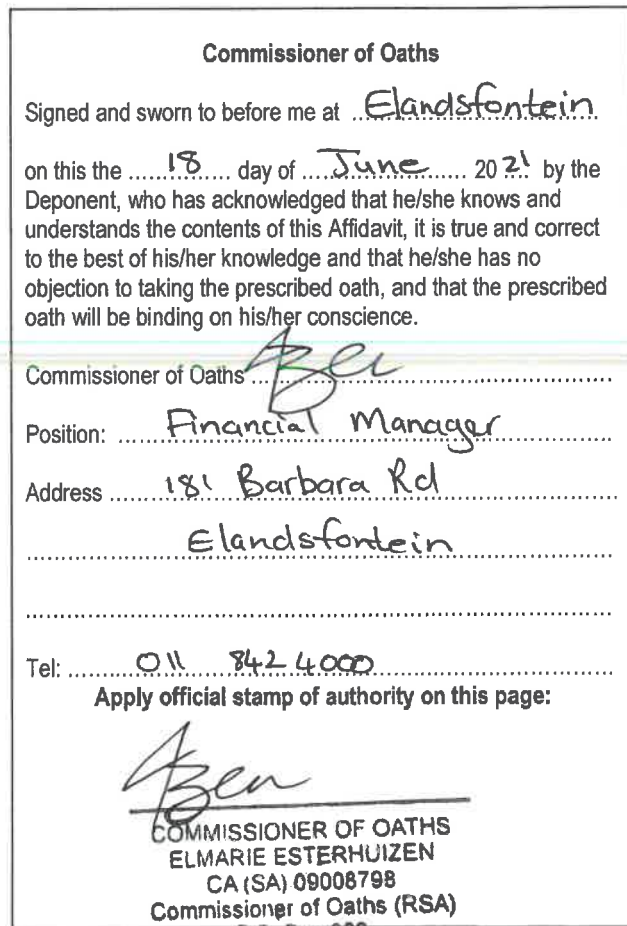 Commissioner of Oaths
Signed and sworn to before me at Elandsfontein
on this the 18 day of June 2021 by the
Deponent, who has acknowledged that he/she knows and
understands the contents of this Affidavit, it is true and correct
to the best of his/her knowledge and that he/she has no
objection to taking the prescribed oath, and that the prescribed
oath will be binding on his/her conscience.
Commissioner of Oaths
Position: Financial Manager
Address 181 Barbara Rd
Elandsfontein
Tel: 011 842 4000
Apply official stamp of authority on this page:
COMMISSIONER OF OATHS
ELMARIE ESTERHUIZEN
CA (SA) 09008798
Commissioner of Oaths (RSA)